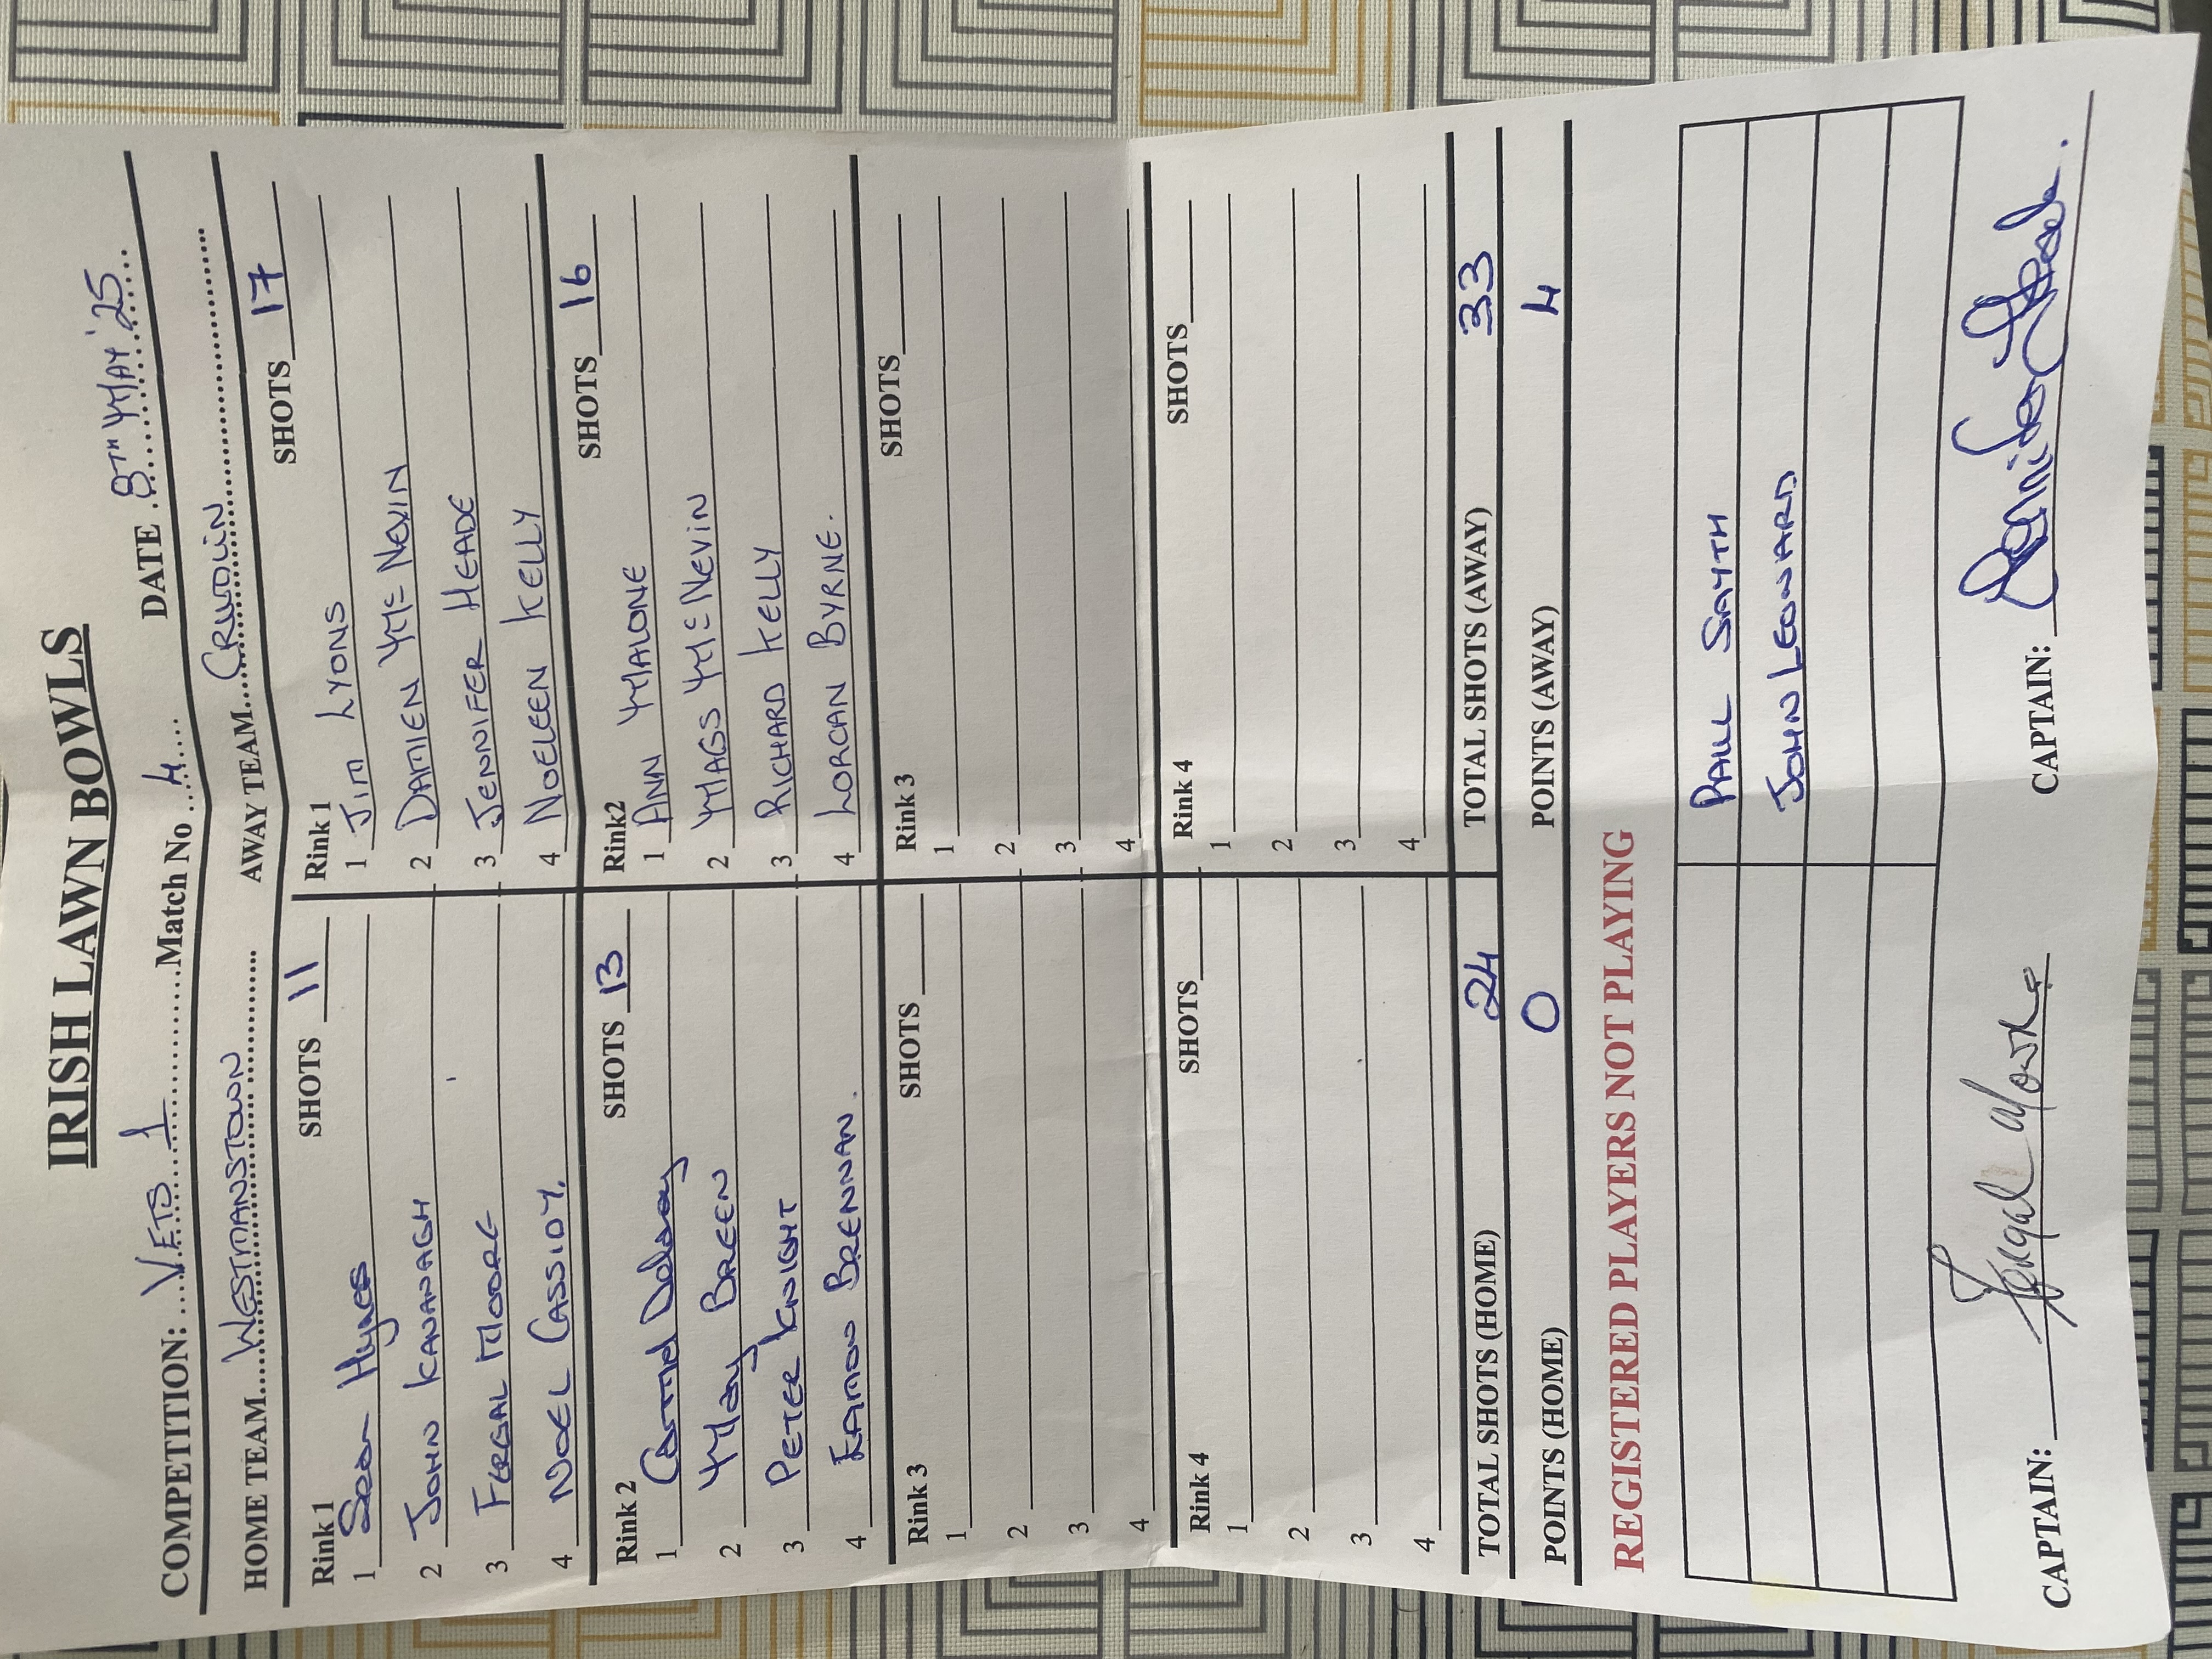 IRISH LAWN BOWLS
COMPETITION: VETS 1 Match No 4 DATE 8TH MAY '25
HOME TEAM WESTMANSTOWN AWAY TEAM CRUMLIN
Rink 1 SHOTS 11
1 Sean Hynes
2 JOHN KAVANAGH
3 FERGAL MOORE
4 NOEL CASSIDY.
Rink 1 SHOTS 17
1 JIM LYONS
2 DAMIEN McNEVIN
3 JENNIFER MEADE
4 NOELEEN KELLY
Rink 2 SHOTS 13
1 Carmel Delaney
2 May BREEN
3 PETER KNIGHT
4 EAMON BRENNAN.
Rink2 SHOTS 16
1 ANN MALONE
2 MAGS McNEVIN
3 RICHARD KELLY
4 LORCAN BYRNE.
Rink 3 SHOTS
1
2
3
4
Rink 3 SHOTS
1
2
3
4
Rink 4 SHOTS
1
2
3
4
Rink 4 SHOTS
1
2
3
4
TOTAL SHOTS (HOME) 24 TOTAL SHOTS (AWAY) 33
POINTS (HOME) 0 POINTS (AWAY) 4
REGISTERED PLAYERS NOT PLAYING
PAUL SMYTH
JOHN LEONARD
CAPTAIN: Fergal Moore CAPTAIN: Jennifer Meade.